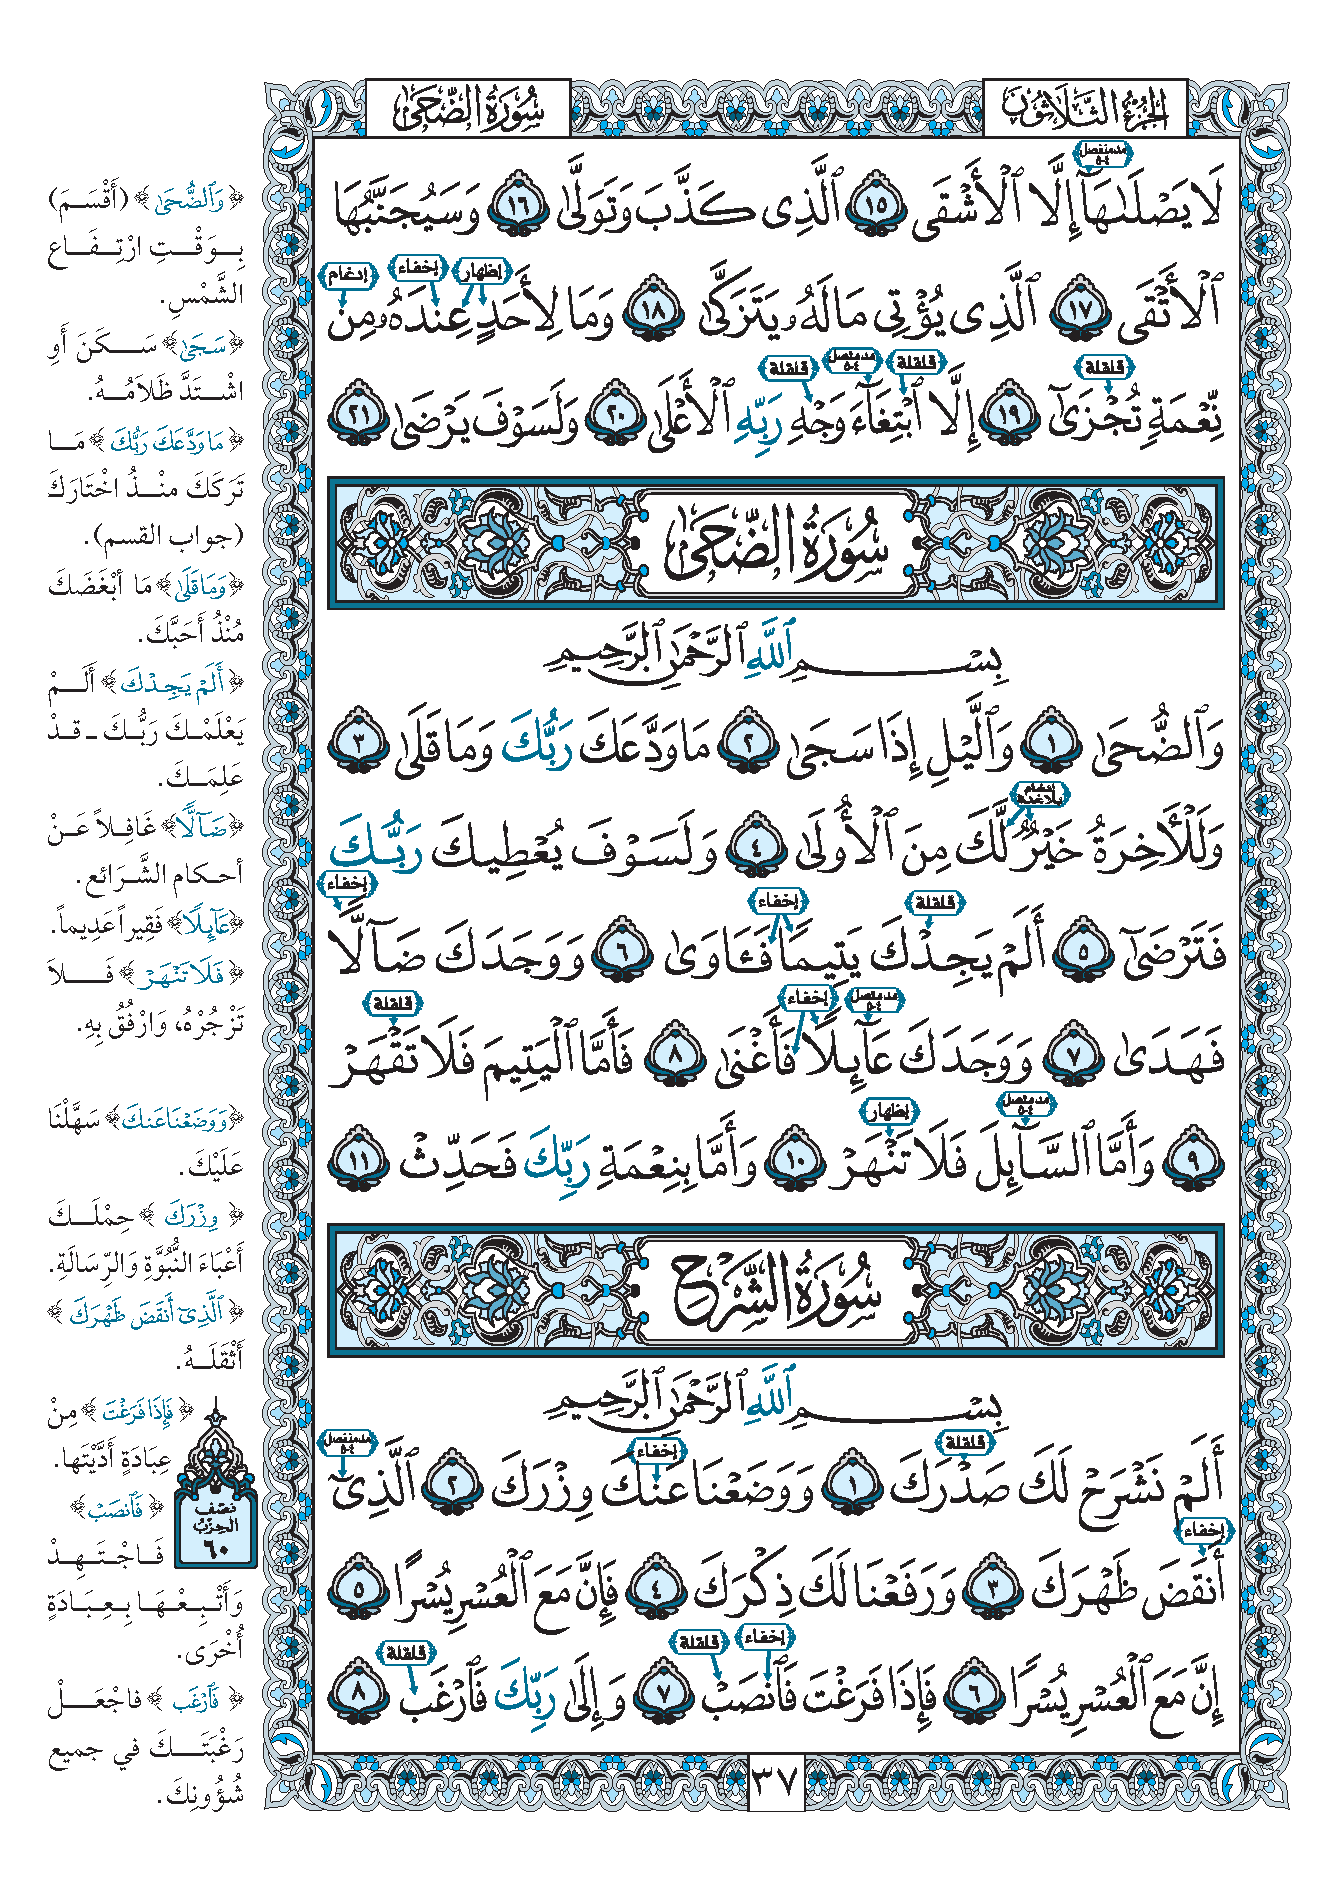 الجُزْءُ الثَّلَاثُونَ
سُورَةُ الضُّحَىٰ
مد منفصل ٤-٥
لَا يَصْلَىٰهَآ إِلَّا ٱلْأَشْقَى ١٥ ٱلَّذِى كَذَّبَ وَتَوَلَّىٰ ١٦ وَسَيُجَنَّبُهَا
إظهار إخفاء إدغام
ٱلْأَتْقَى ١٧ ٱلَّذِى يُؤْتِى مَالَهُۥ يَتَزَكَّىٰ ١٨ وَمَا لِأَحَدٍ عِندَهُۥ مِن
قلقلة قلقلة مد متصل ٤-٥ قلقلة
نِّعْمَةٍ تُجْزَىٰٓ ١٩ إِلَّا ٱبْتِغَآءَ وَجْهِ رَبِّهِ ٱلْأَعْلَىٰ ٢٠ وَلَسَوْفَ يَرْضَىٰ ٢١
سُورَةُ الضُّحَىٰ
بِسْمِ ٱللَّهِ ٱلرَّحْمَٰنِ ٱلرَّحِيمِ
وَٱلضُّحَىٰ ١ وَٱلَّيْلِ إِذَا سَجَىٰ ٢ مَا وَدَّعَكَ رَبُّكَ وَمَا قَلَىٰ ٣
إدغام بلا غنة
وَلَلْأَخِرَةُ خَيْرٌ لَّكَ مِنَ ٱلْأُولَىٰ ٤ وَلَسَوْفَ يُعْطِيكَ رَبُّكَ
قلقلة إخفاء إخفاء
فَتَرْضَىٰٓ ٥ أَلَمْ يَجِدْكَ يَتِيمًا فَـَٔاوَىٰ ٦ وَوَجَدَكَ ضَآلًّا
مد متصل ٤-٥ إخفاء قلقلة
فَهَدَىٰ ٧ وَوَجَدَكَ عَآئِلًا فَأَغْنَىٰ ٨ فَأَمَّا ٱلْيَتِيمَ فَلَا تَقْهَرْ
مد متصل ٤-٥ إظهار
٩ وَأَمَّا ٱلسَّآئِلَ فَلَا تَنْهَرْ ١٠ وَأَمَّا بِنِعْمَةِ رَبِّكَ فَحَدِّثْ ١١
سُورَةُ الشَّرْحِ
بِسْمِ ٱللَّهِ ٱلرَّحْمَٰنِ ٱلرَّحِيمِ
قلقلة إخفاء مد منفصل ٤-٥
أَلَمْ نَشْرَحْ لَكَ صَدْرَكَ ١ وَوَضَعْنَا عَنكَ وِزْرَكَ ٢ ٱلَّذِىٓ
إخفاء
أَنقَضَ ظَهْرَكَ ٣ وَرَفَعْنَا لَكَ ذِكْرَكَ ٤ فَإِنَّ مَعَ ٱلْعُسْرِ يُسْرًا ٥
إخفاء قلقلة قلقلة
إِنَّ مَعَ ٱلْعُسْرِ يُسْرًا ٦ فَإِذَا فَرَغْتَ فَٱنصَبْ ٧ وَإِلَىٰ رَبِّكَ فَٱرْغَب ٨
٣٧
﴿ وَٱلضُّحَىٰ ﴾ (أَقْسَمَ)
بِوَقْتِ ارْتِفَاعِ
الشَّمْسِ.
﴿سَجَىٰ﴾ سَكَنَ أَوِ
اشْتَدَّ ظَلَامُهُ.
﴿ مَا وَدَّعَكَ رَبُّكَ ﴾ مَا
تَرَكَكَ مُنْذُ اخْتَارَكَ
(جواب القسم).
﴿وَمَا قَلَىٰ﴾ مَا أَبْغَضَكَ
مُنْذُ أَحَبَّكَ.
﴿ أَلَمْ يَجِدْكَ ﴾ أَلَمْ
يَعْلَمْكَ رَبُّكَ ـ قَدْ
عَلِمَكَ.
﴿ضَآلًّا﴾ غَافِلاً عَنْ
أحكام الشَّرَائع.
﴿عَآئِلًا﴾ فَقِيراً عَدِيماً.
﴿ فَلَا تَنْهَرْ ﴾ فَلاَ
تَزْجُرْهُ، وَارْفُقْ بِهِ.
﴿وَوَضَعْنَا عَنكَ﴾ سَهَّلْنَا
عَلَيْكَ.
﴿ وِزْرَكَ ﴾ حِمْلَكَ
أَعْبَاءَ النُّبُوَّةِ وَالرِّسَالَةِ.
﴿ ٱلَّذِىٓ أَنقَضَ ظَهْرَكَ ﴾
أَثْقَلَهُ.
﴿ فَإِذَا فَرَغْتَ ﴾ مِنْ
عِبَادَةٍ أَدَّيْتَهَا.
﴿ فَٱنصَبْ ﴾
فَاجْتَهِدْ
وَأَتْبِعْهَا بِعِبَادَةٍ
أُخْرَى.
﴿ فَٱرْغَب ﴾ فاجْعَلْ
رَغْبَتَكَ في جميع
شُؤُونِكَ.
نصف
الحزب
٦٠